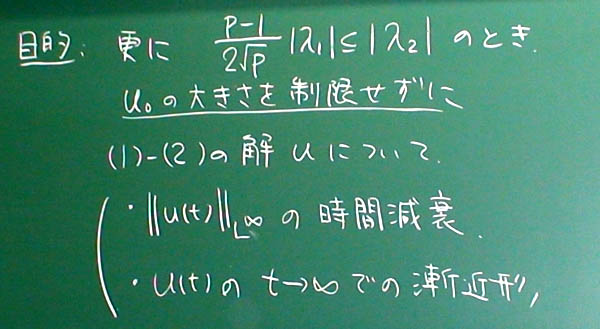 目的: 更に (p-1)/(2√p) |λ₁| ≤ |λ₂| のとき.
u₀の大きさを制限せずに
(1)-(2)の解 u について.
・||u(t)||_L∞ の時間減衰.
・u(t)の t→∞での漸近形,